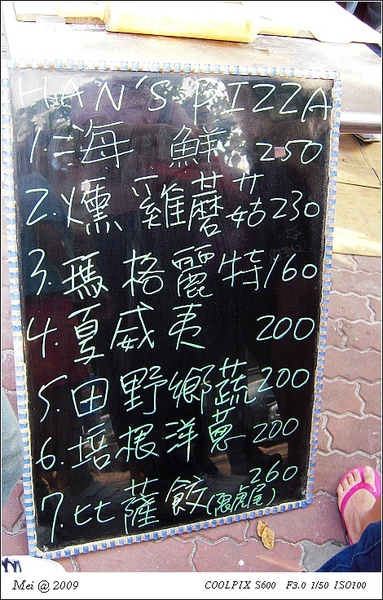 HAN'S PIZZA
1. 海鮮 250
2. 燻雞蘑菇 230
3. 瑪格麗特 160
4. 夏威夷 200
5. 田野鄉蔬 200
6. 培根洋蔥 200
7. 比薩餃 260
Mei @ 2009
COOLPIX S600 F3.0 1/50 ISO100